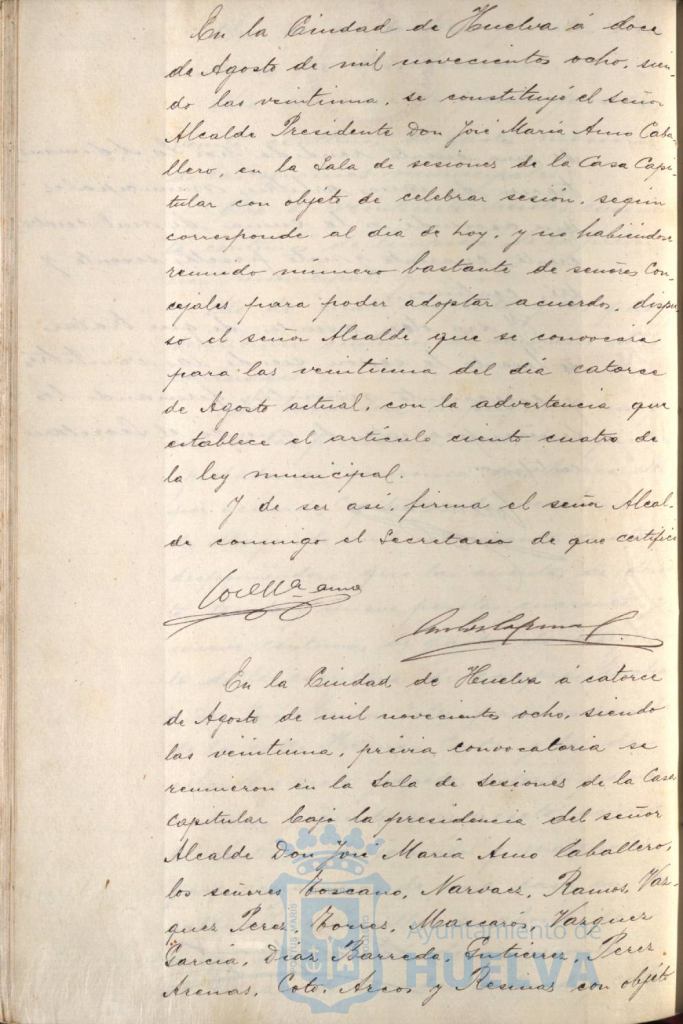 En la Ciudad de Huelva á doce
de Agosto de mil novecientos ocho, sien-
do las veintiuna, se constituyó el señor
Alcalde Presidente Don José María Amo Caba-
llero, en la Sala de sesiones de la Casa Capi-
tular con objeto de celebrar sesión, según
corresponde al dia de hoy, y no habiéndose
reunido número bastante de señores Con-
cejales para poder adoptar acuerdos, dispu-
so el señor Alcalde que se convocara
para las veintiuna del dia catorce
de Agosto actual, con la advertencia que
establece el artículo ciento cuatro de
la ley municipal.
Y de ser así, firma el señor Alcal-
de conmigo el Secretario de que certifico
José Mª Amo
En la Ciudad de Huelva á catorce
de Agosto de mil novecientos ocho, siendo
las veintiuna, prévia convocatoria se
reunieron en la Sala de Sesiones de la Casa
capitular bajo la presidencia del señor
Alcalde Don José María Amo Caballero,
los señores Toscano, Narvaez, Ramos, Vaz-
quez Perez, Torres, Maccaró, Vazquez
Garcia, Diaz Barreda, Gutierrez, Perez
Arenas, Coto, Arcos y Resinas con objeto
Ayuntamiento de
HUELVA